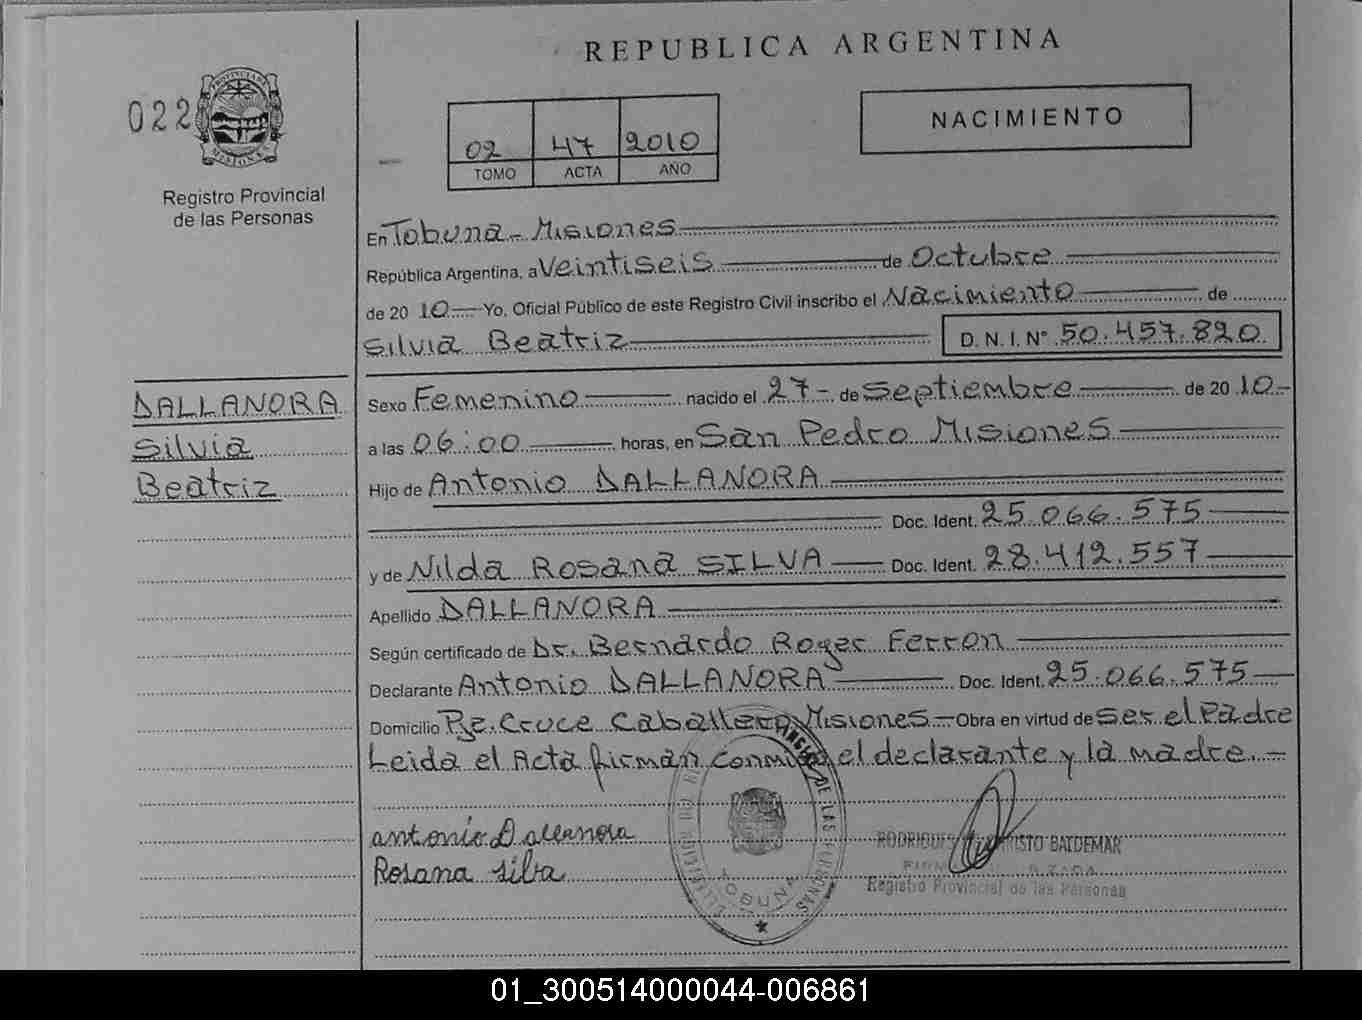 REPUBLICA ARGENTINA
022
PROVINCIA DE
MISIONES
Registro Provincial
de las Personas
02 47 2010
TOMO ACTA AÑO
NACIMIENTO
En Tobuna - Misiones
República Argentina, a Veintiseis de Octubre
de 20 10 Yo, Oficial Público de este Registro Civil inscribo el Nacimiento de
Silvia Beatriz D. N. I. Nº 50.457.820
DALLANORA
Silvia
Beatriz
Sexo Femenino nacido el 27 - de Septiembre de 20 10 -
a las 06:00 horas, en San Pedro Misiones
Hijo de Antonio DALLANORA
Doc. Ident. 25.066.575
y de Nilda Rosana SILVA Doc. Ident. 28.412.557
Apellido DALLANORA
Según certificado de Dr. Bernardo Roger Ferron
Declarante Antonio DALLANORA Doc. Ident. 25.066.575
Domicilio Pje. Cruce Caballero Misiones - Obra en virtud de ser el Padre
Leida el Acta firman conmigo el declarante y la madre. -
antonio Dallanora
Rosana silva
DE LAS PERSONAS
TOBUNA
BALDEMAR
Registro Provincial de las Personas
01_300514000044-006861